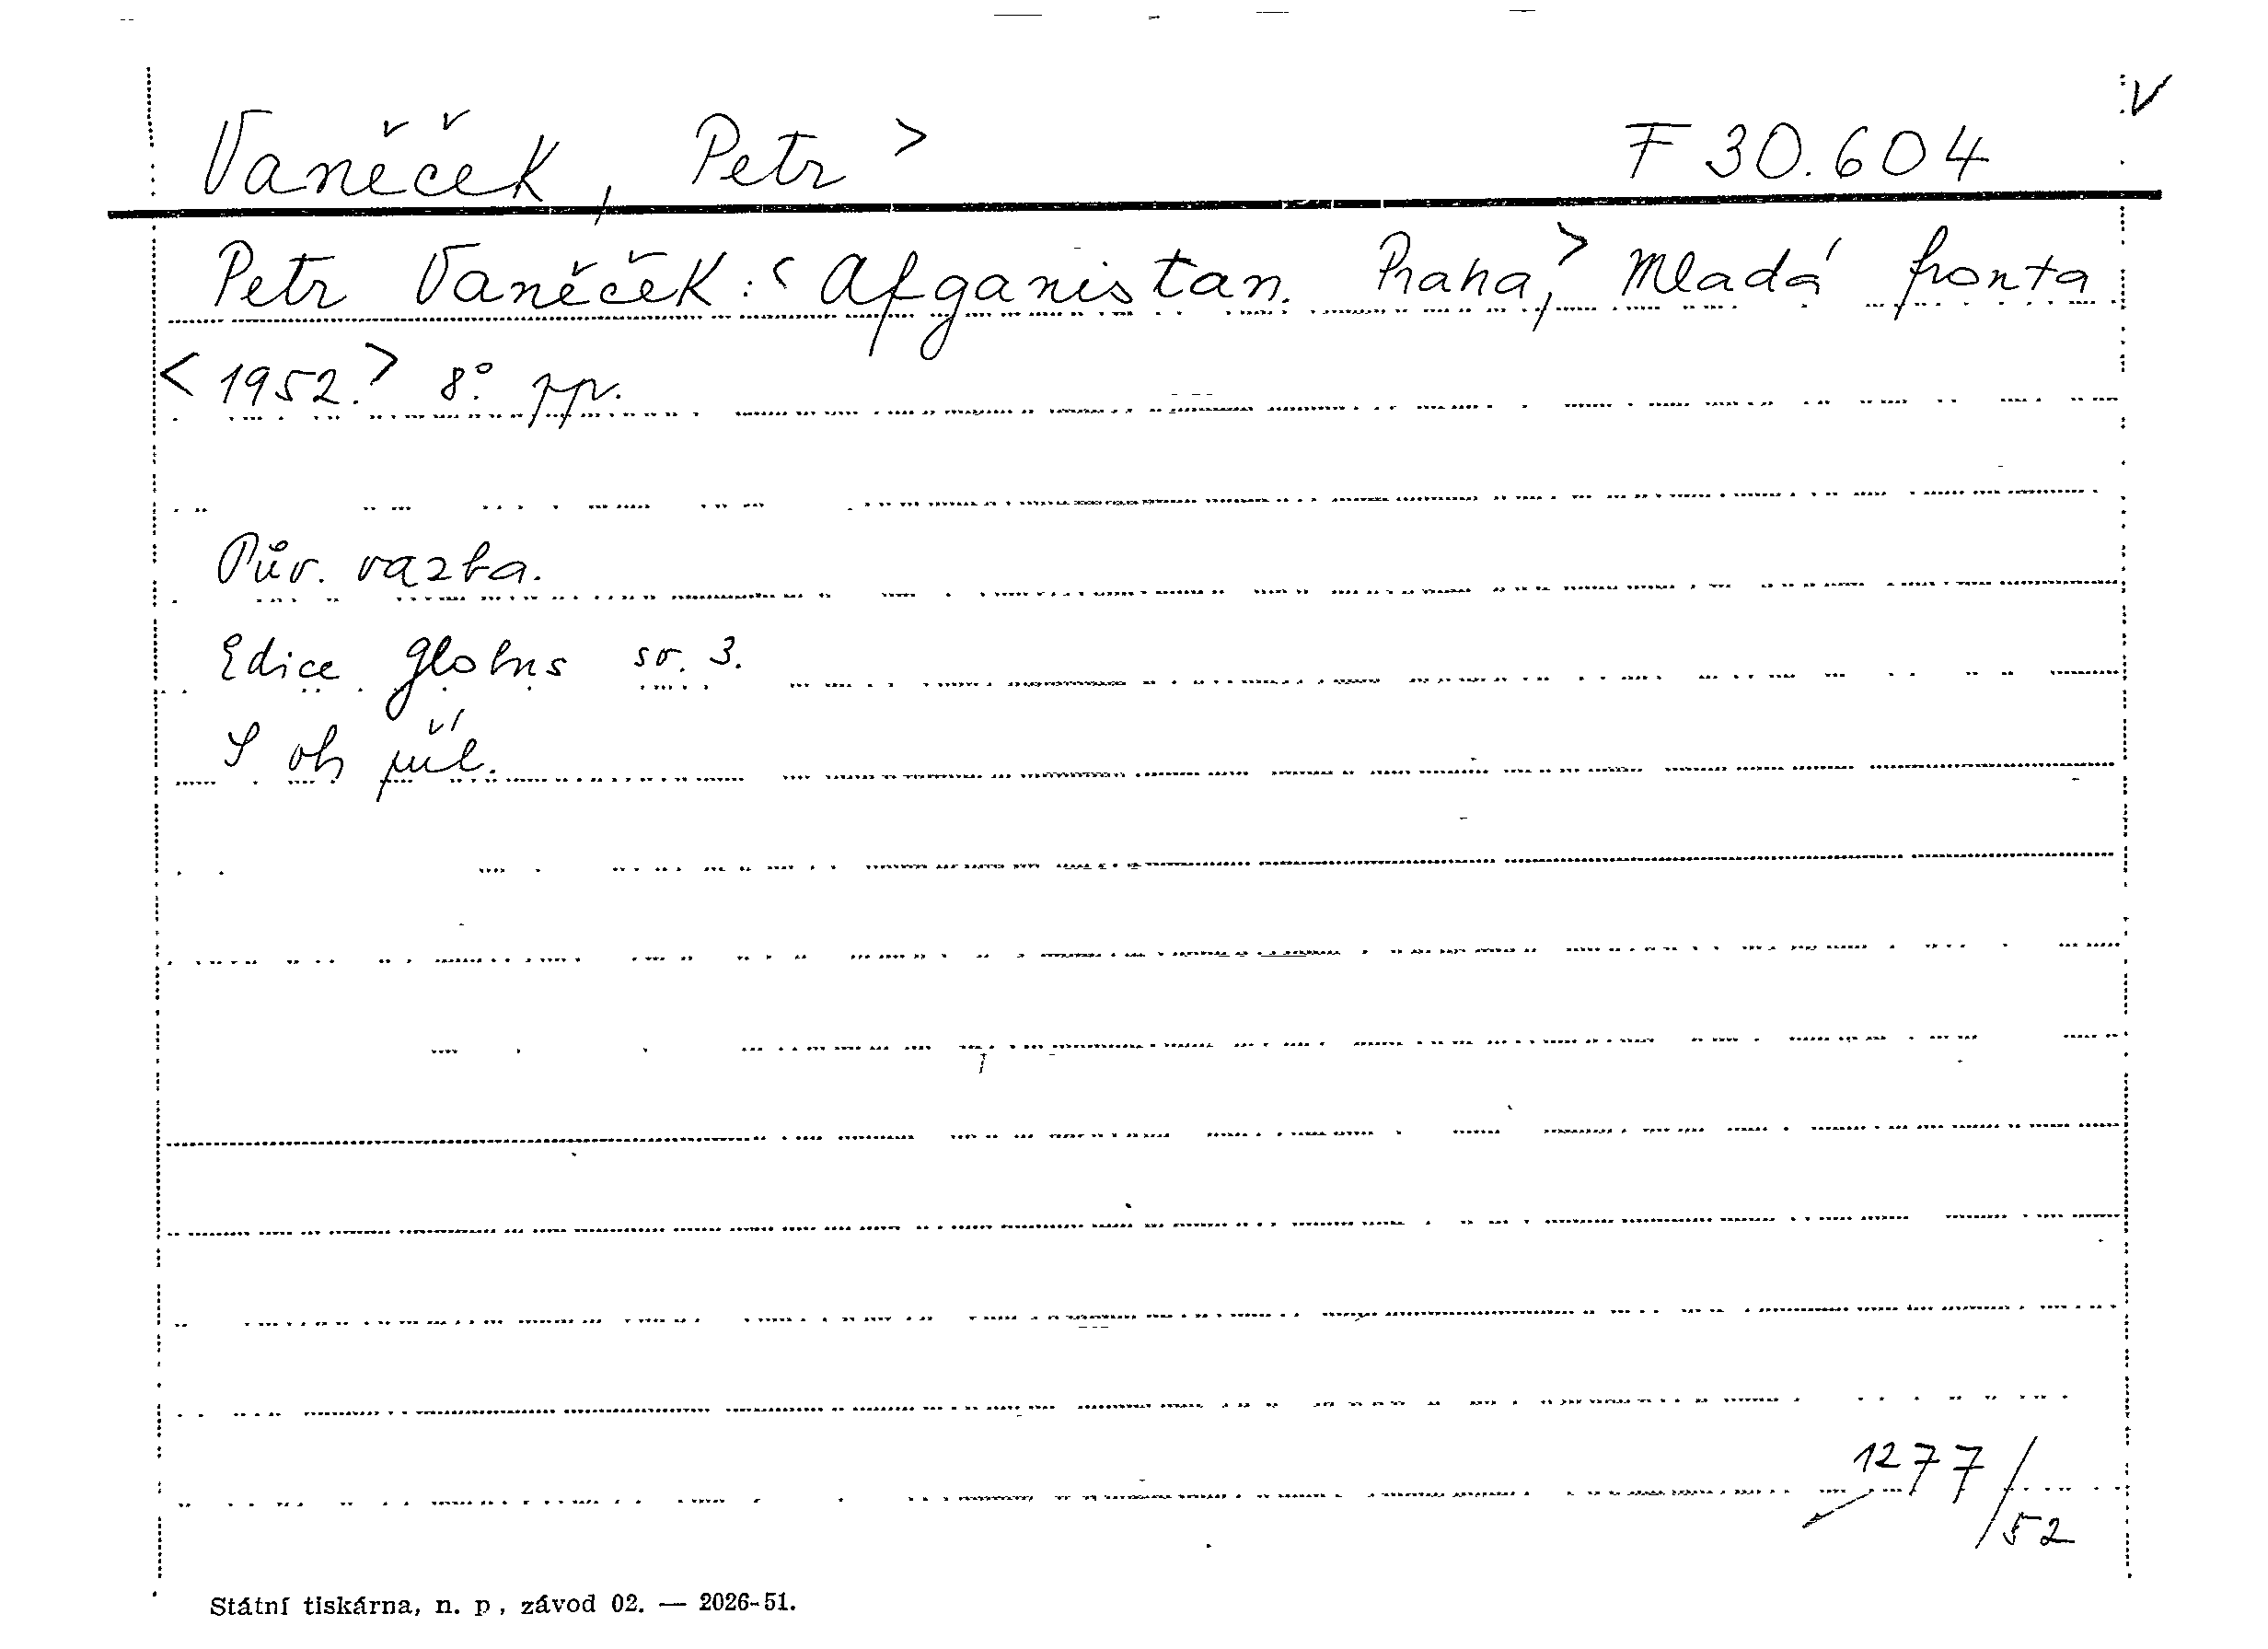 V
Vaněček, Petr > F 30.604
Petr Vaněček: < Afganistan. Praha, > Mladá fronta
< 1952. > 8°. pp.
Pův. vazba.
Edice Globus sv. 3.
S ob příl.
1277/52
Státní tiskárna, n. p., závod 02. — 2026-51.